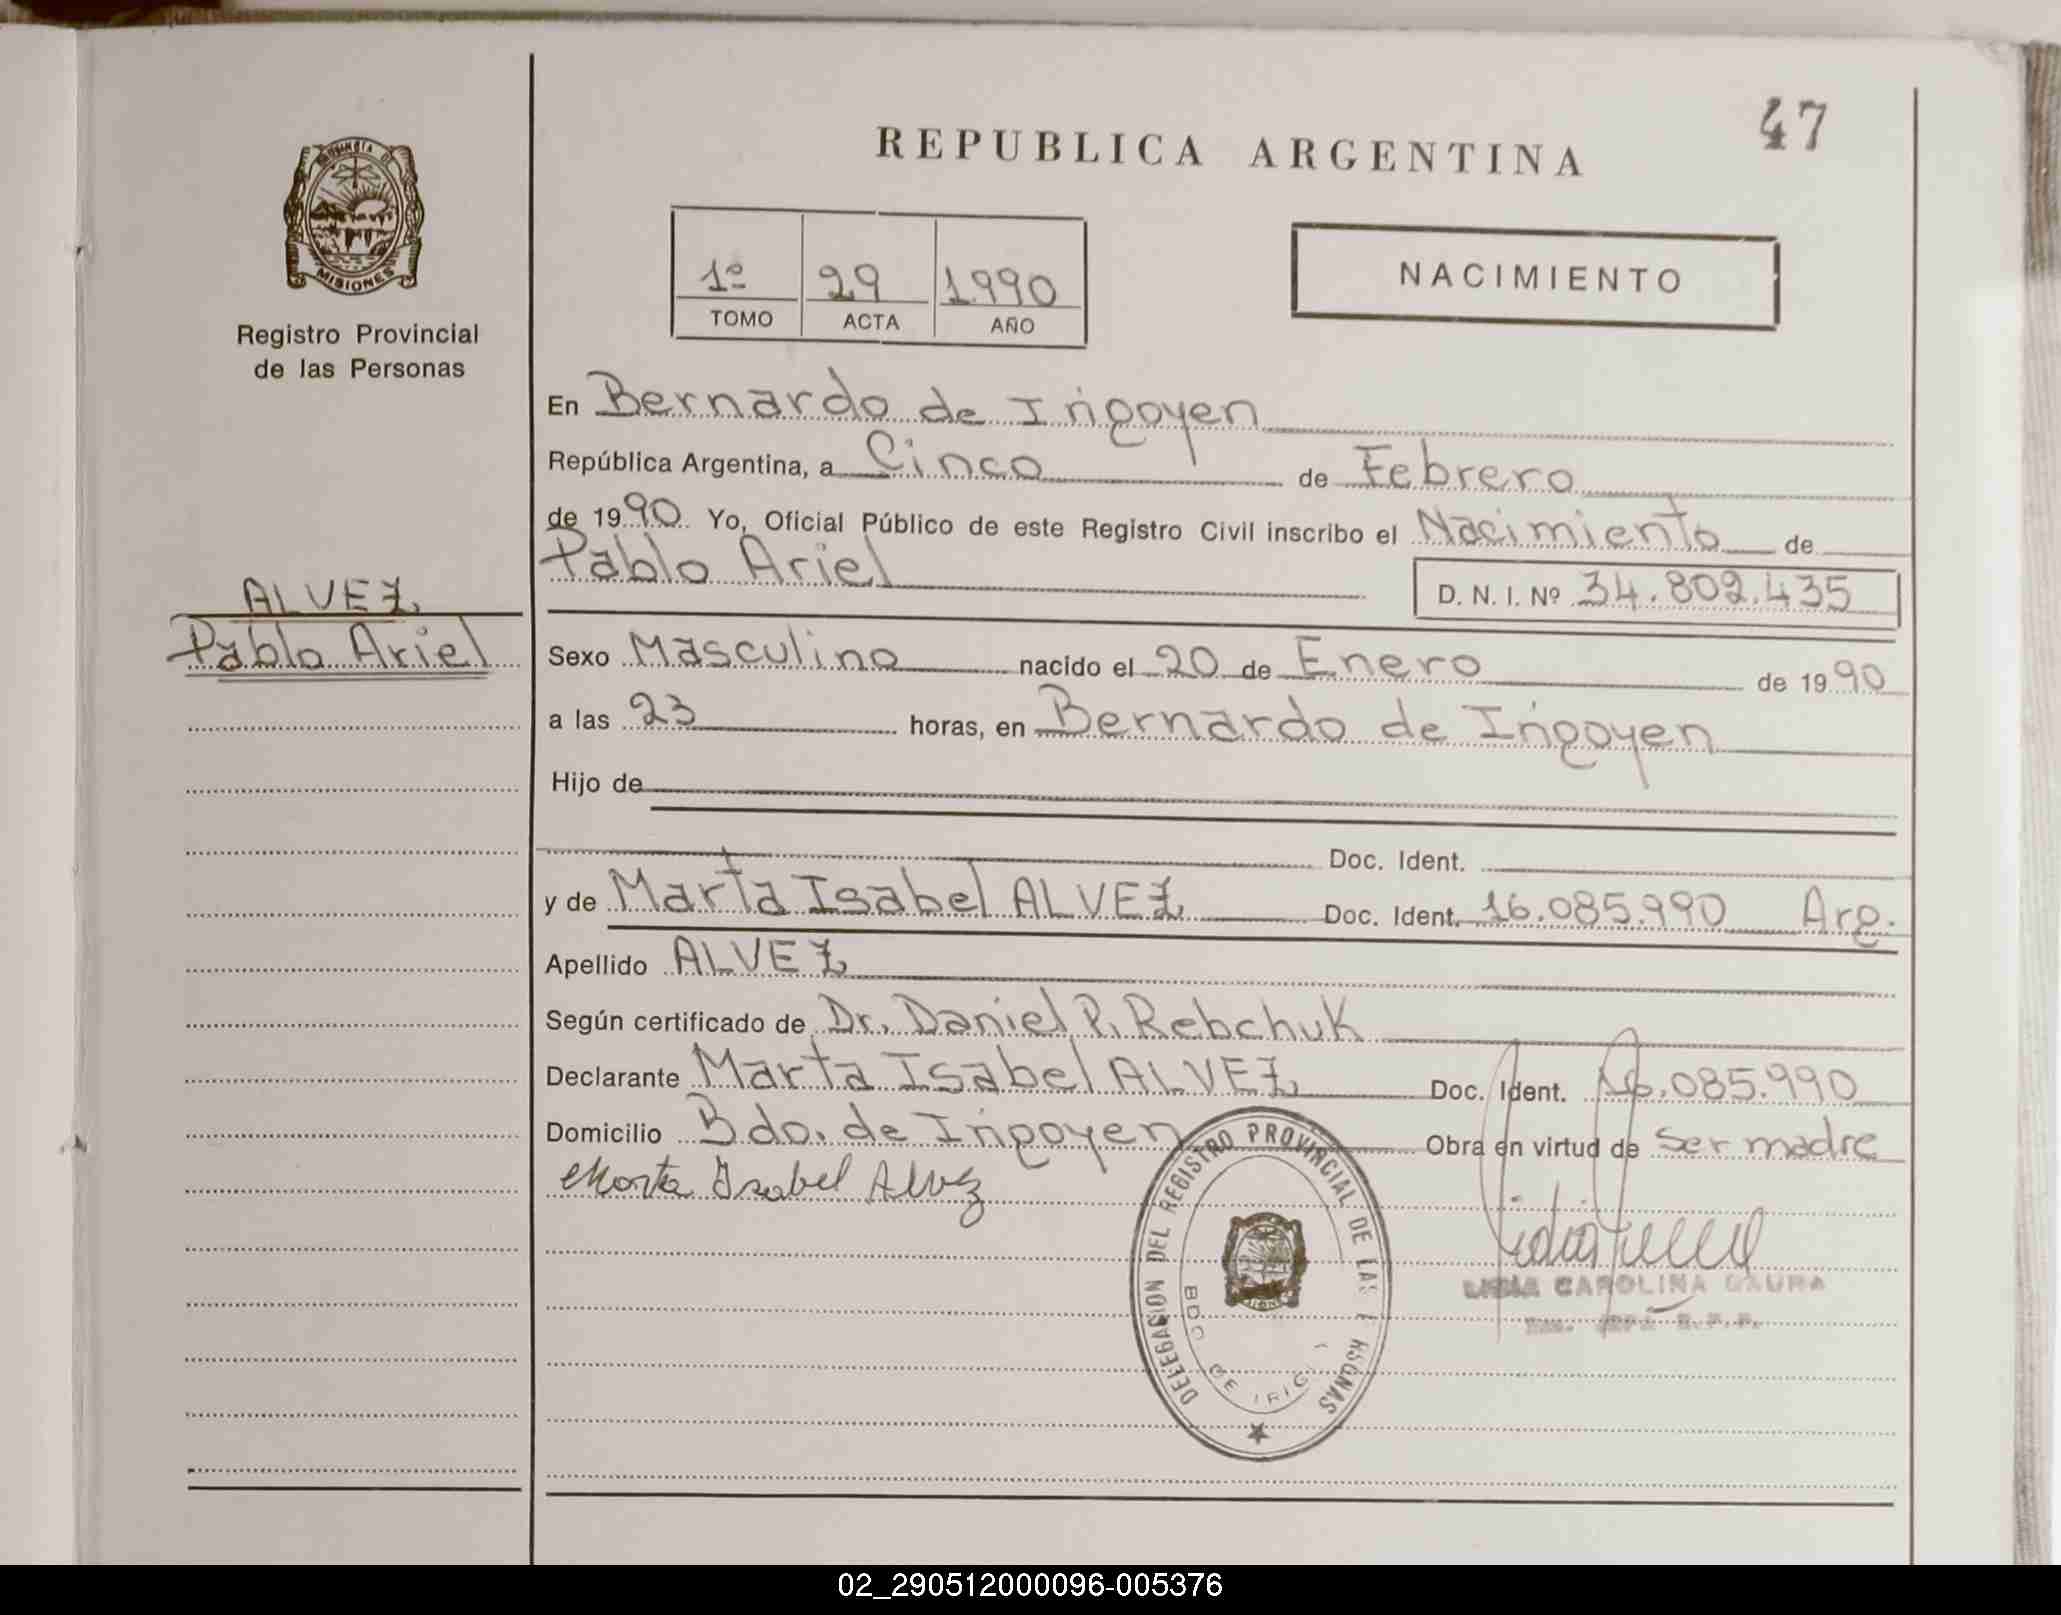 47
REPUBLICA ARGENTINA
PROVINCIA DE
MISIONES
Registro Provincial
de las Personas
1º 29 1990
TOMO ACTA AÑO
NACIMIENTO
En Bernardo de Irigoyen
República Argentina, a Cinco de Febrero
de 1990 Yo, Oficial Público de este Registro Civil inscribo el Nacimiento de
Pablo Ariel
D. N. I. Nº 34.802.435
ALVEZ
Pablo Ariel
Sexo Masculino nacido el 20 de Enero de 1990
a las 23 horas, en Bernardo de Irigoyen
Hijo de
Doc. Ident.
y de Marta Isabel ALVEZ Doc. Ident. 16.085.990 Arg.
Apellido ALVEZ
Según certificado de Dr. Daniel P. Rebchuk
Declarante Marta Isabel ALVEZ Doc. Ident. 16.085.990
Domicilio Bdo. de Irigoyen Obra en virtud de Ser madre
Marta Isabel Alvez
DELEGASION DEL REGISTRO PROVINCIAL DE LAS
BDO DE
CAROLINA
02_290512000096-005376